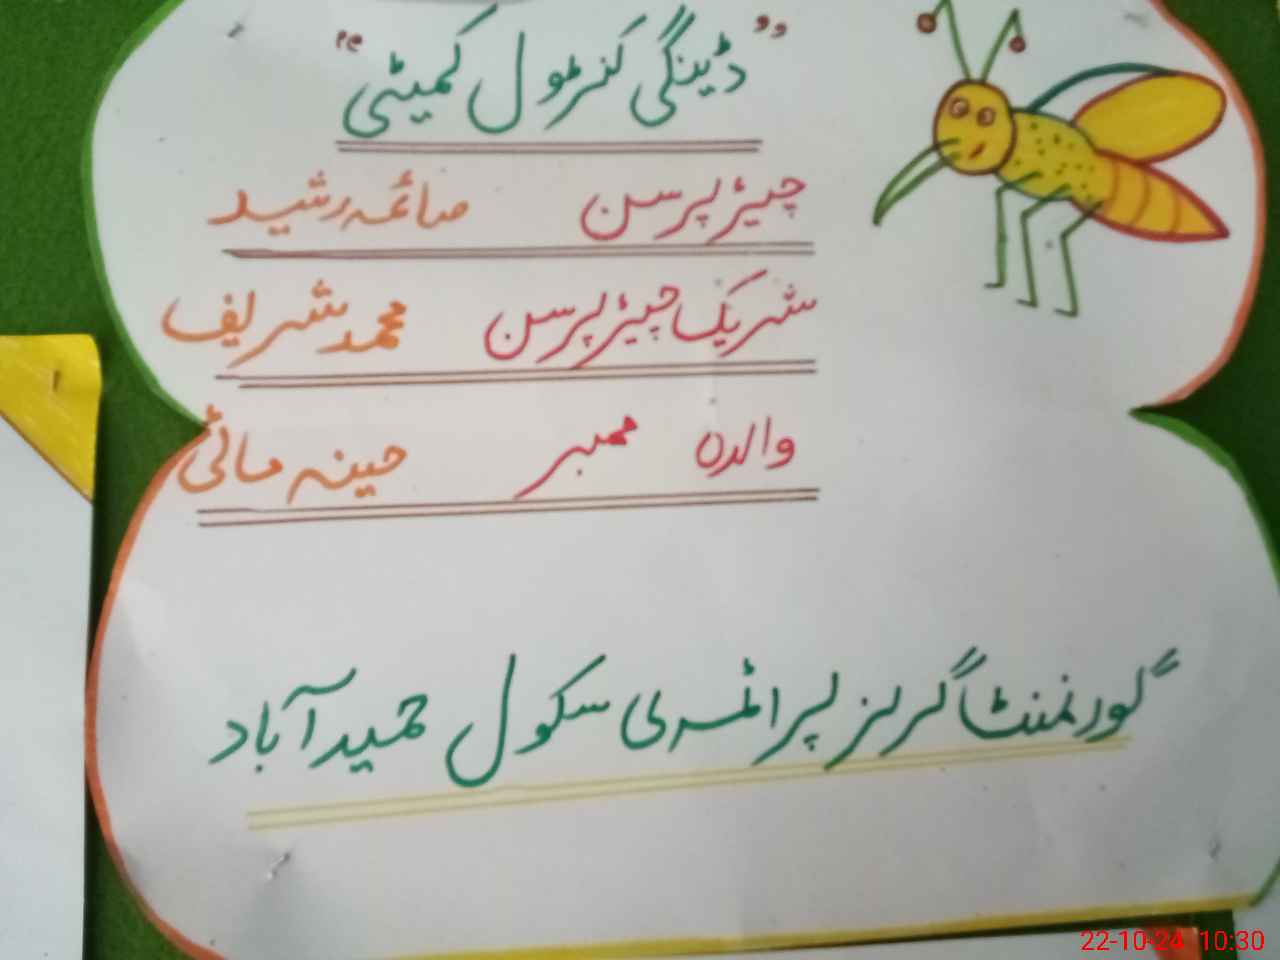 "ڈینگی کنٹرول کمیٹی"
چیئرپرسن صائمہ رشید
شریک چیئرپرسن محمد شریف
والدہ ممبر حینہ مائی
گورنمنٹ گرلز پرائمری سکول حمید آباد
22-10-24 10:30